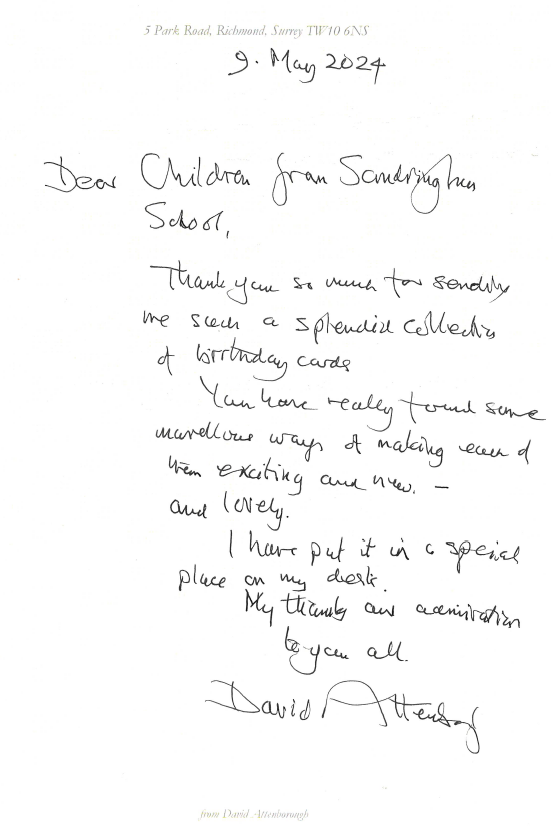 5 Park Road, Richmond, Surrey TW10 6NS
9. May 2024
Dear Children from Sandringham
School,
Thank you so much for sending
me such a splendid collection
of birthday cards
You have really found some
marvellous ways of making each of
them exciting and new. –
and lovely.
I have put it in a special
place on my desk.
My thanks and admiration
to you all.
David Attenborough
from David Attenborough